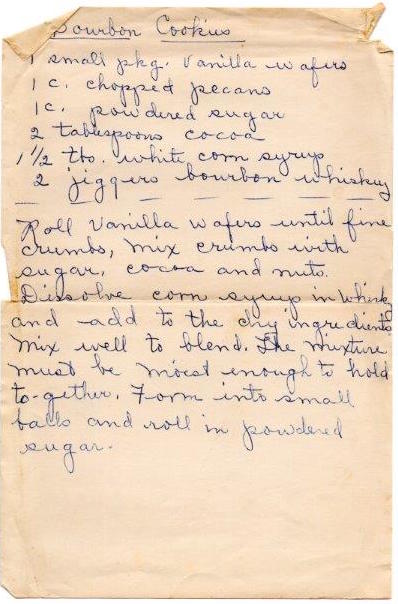 Bourbon Cookies
1 small pkg. Vanilla wafers
1 c. chopped pecans
1 c. powdered sugar
2 tablespoons cocoa
1 1/2 tbs. white corn syrup
2 jiggers bourbon whiskey
Roll Vanilla wafers until fine
crumbs, mix crumbs with
sugar, cocoa and nuts.
Dissolve corn syrup in whisky
and add to the dry ingredients
Mix well to blend. The mixture
must be moist enough to hold
to-gether. Form into small
balls and roll in powdered
sugar.